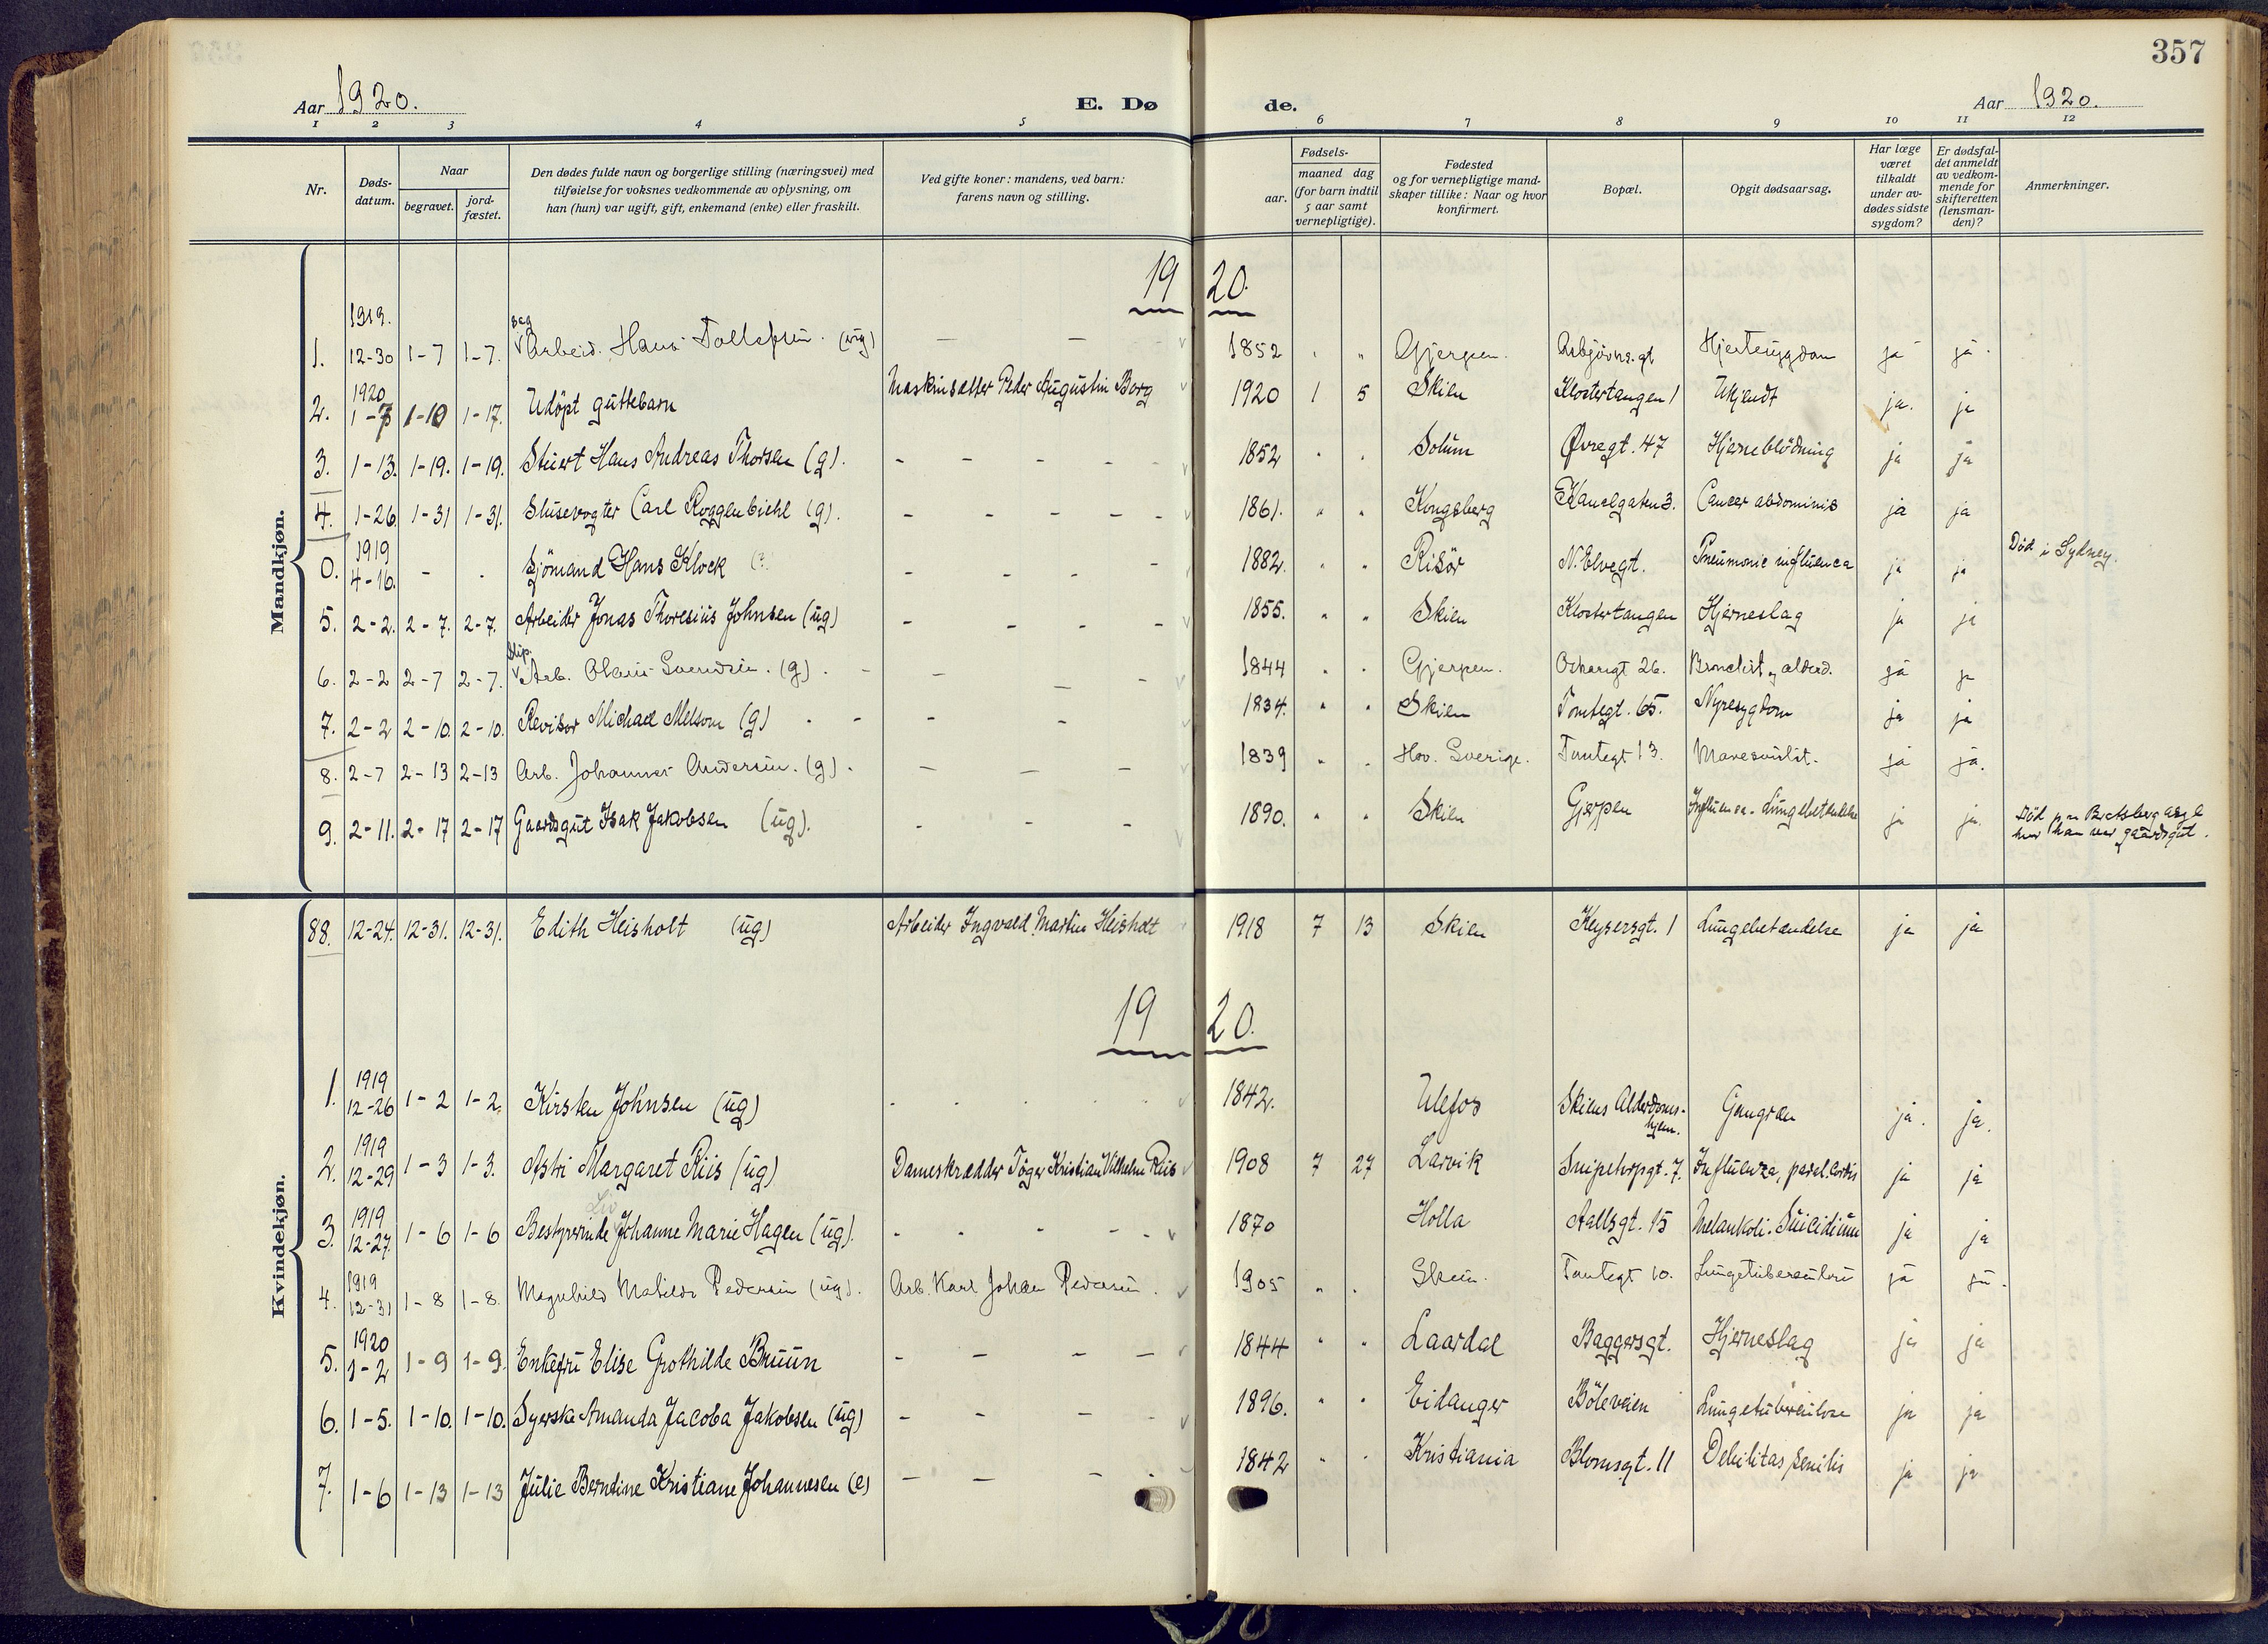 357
Aar 1920. E. Døde. Aar 1920.
1 2 3 4 5 6 7 8 9 10 11 12
Nr. Døds-datum. Naar begravet. jord-fæstet. Den dødes fulde navn og borgerlige stilling (næringsvei) med tilføielse for voksnes vedkommende av oplysning, om han (hun) var ugift, gift, enkemand (enke) eller fraskilt. Ved gifte koner: mandens, ved barn: farens navn og stilling. Fødsels- aar. maaned dag (for barn indtil 5 aar samt vernepligtige). Fødested og for vernepligtige mand-skaper tillike: Naar og hvor konfirmert. Bopæl. Opgit dødsaarsag. Har læge været tilkaldt under av-dødes sidste sygdom? Er dødsfal-det anmeldt av vedkom-mende for skifteretten (lensman-den)? Anmerkninger.
Mandkjøn.
1920.
1. 1919. 12-30 1-7 1-7. Arbeid. Hans Tollefsen. (ug) — — 1852 " " Gjerpen. Asbjövns.gt Hjertesygdom ja ja.
2. 1920 1-7 1-10 1-17. Udöpt guttebarn Maskinsetter Peder Augustin Borg 1920 1 5 Skien Klostertangen 1 Ukjendt ja. ja
3. 1-13. 1-19. 1-19. Stuert Hans Andreas Thorsen (g). - - - - 1852 " " Solum Øvregt. 47 Hjerneblödning ja ja
4. 1-26. 1-31 1-31. Slusevogter Carl Roggenbiehl (g). - - - - - 1861. " " Kongsberg Kanalgaten 3. Cancer abdominis ja ja
0. 1919 4-16. - - Sjömand Hans Klock - - - - 1882. " " Risör N. Elvegt. Pneumonie influenca ja ja Död i Sydney.
5. 2-2. 2-7. 2-7. Arbeider Jonas Thoresius Johnsen (ug) - - - - 1855. " " Skien Klostertangen Hjerneslag ja ja
6. 2-2 2-7 2-7. Slip. Arb. Olaus Svendsen. (g). - - - - 1844 " " Gjerpen. Oscarsgt 26. Bronchit og alderd. ja ja
7. 2-2 2-10. 2-10. Revisor Michael Melsom (g) - - - - 1834. " " Skien Tomtegt. 65. Nyresygdom ja ja
8. 2-7 2-13 2-13 Arb. Johannes Andersen. (g). — — — 1839 " " Hov. Sverige. Tomtegt 13. ja ja.
9. 2-11. 2-17 2-17 Gaardsgut Isak Jakobsen (ug). - - - 1890. " " Skien Gjerpen Influensa. Lungebetendelse ja ja. Död paa Bratsberg asyl hvor han var gaardsgut.
Kvindekjøn.
88. 12-24. 12-31. 12-31. Edith Heisholt (ug) Arbeider Ingvald Martin Heisholt 1918 7 13 Skien Keysersgt. 1 Lungebetændelse ja ja
1920.
1. 1919 12-26 1-2 1-2. Kirsten Johnsen (ug) - - - - - 1842. Ulefos Skiens Alderdoms-hjem. Gangræn ja. ja.
2. 1919 12-29 1-3 1-3. Astri Margaret Riis (ug) Dameskrædder Töger Kristian Vilhelm Riis 1908 7 27 Larvik Snipetorpgt. 7. Influenza, paral. cordis ja ja
3. 1919 12-27. 1-6 1-6 Bestyrerinde Johanne Marie Hagen (ug). - - - - - 1870 Holla Aallsgt. 15 Melankoli. Suicidium ja ja
4. 1919 12-31 1-8 1-8. Magnhild Matilde Pedersen (ug). Arb. Karl Johan Pedersen. 1905 " " Skien. Tomtegt 10. Lungetuberculose ja ja.
5. 1920 1-2 1-9 1-9. Enkefru Elise Grothilde Bruun - - - — 1844 " " Laardal Baggersgt. Hjerneslag ja ja
6. 1-5. 1-10. 1-10. Syerske Amanda Jacoba Jakobsen (ug) - - - - 1896. " " Eidanger Böleveien Lungetuberkulose ja ja
7. 1-6 1-13 1-13 Julie Berntine Kristiane Johannesen (e) - - - - 1842 " " Kristiania Blomsgt. 11 Debilitas senilis ja ja